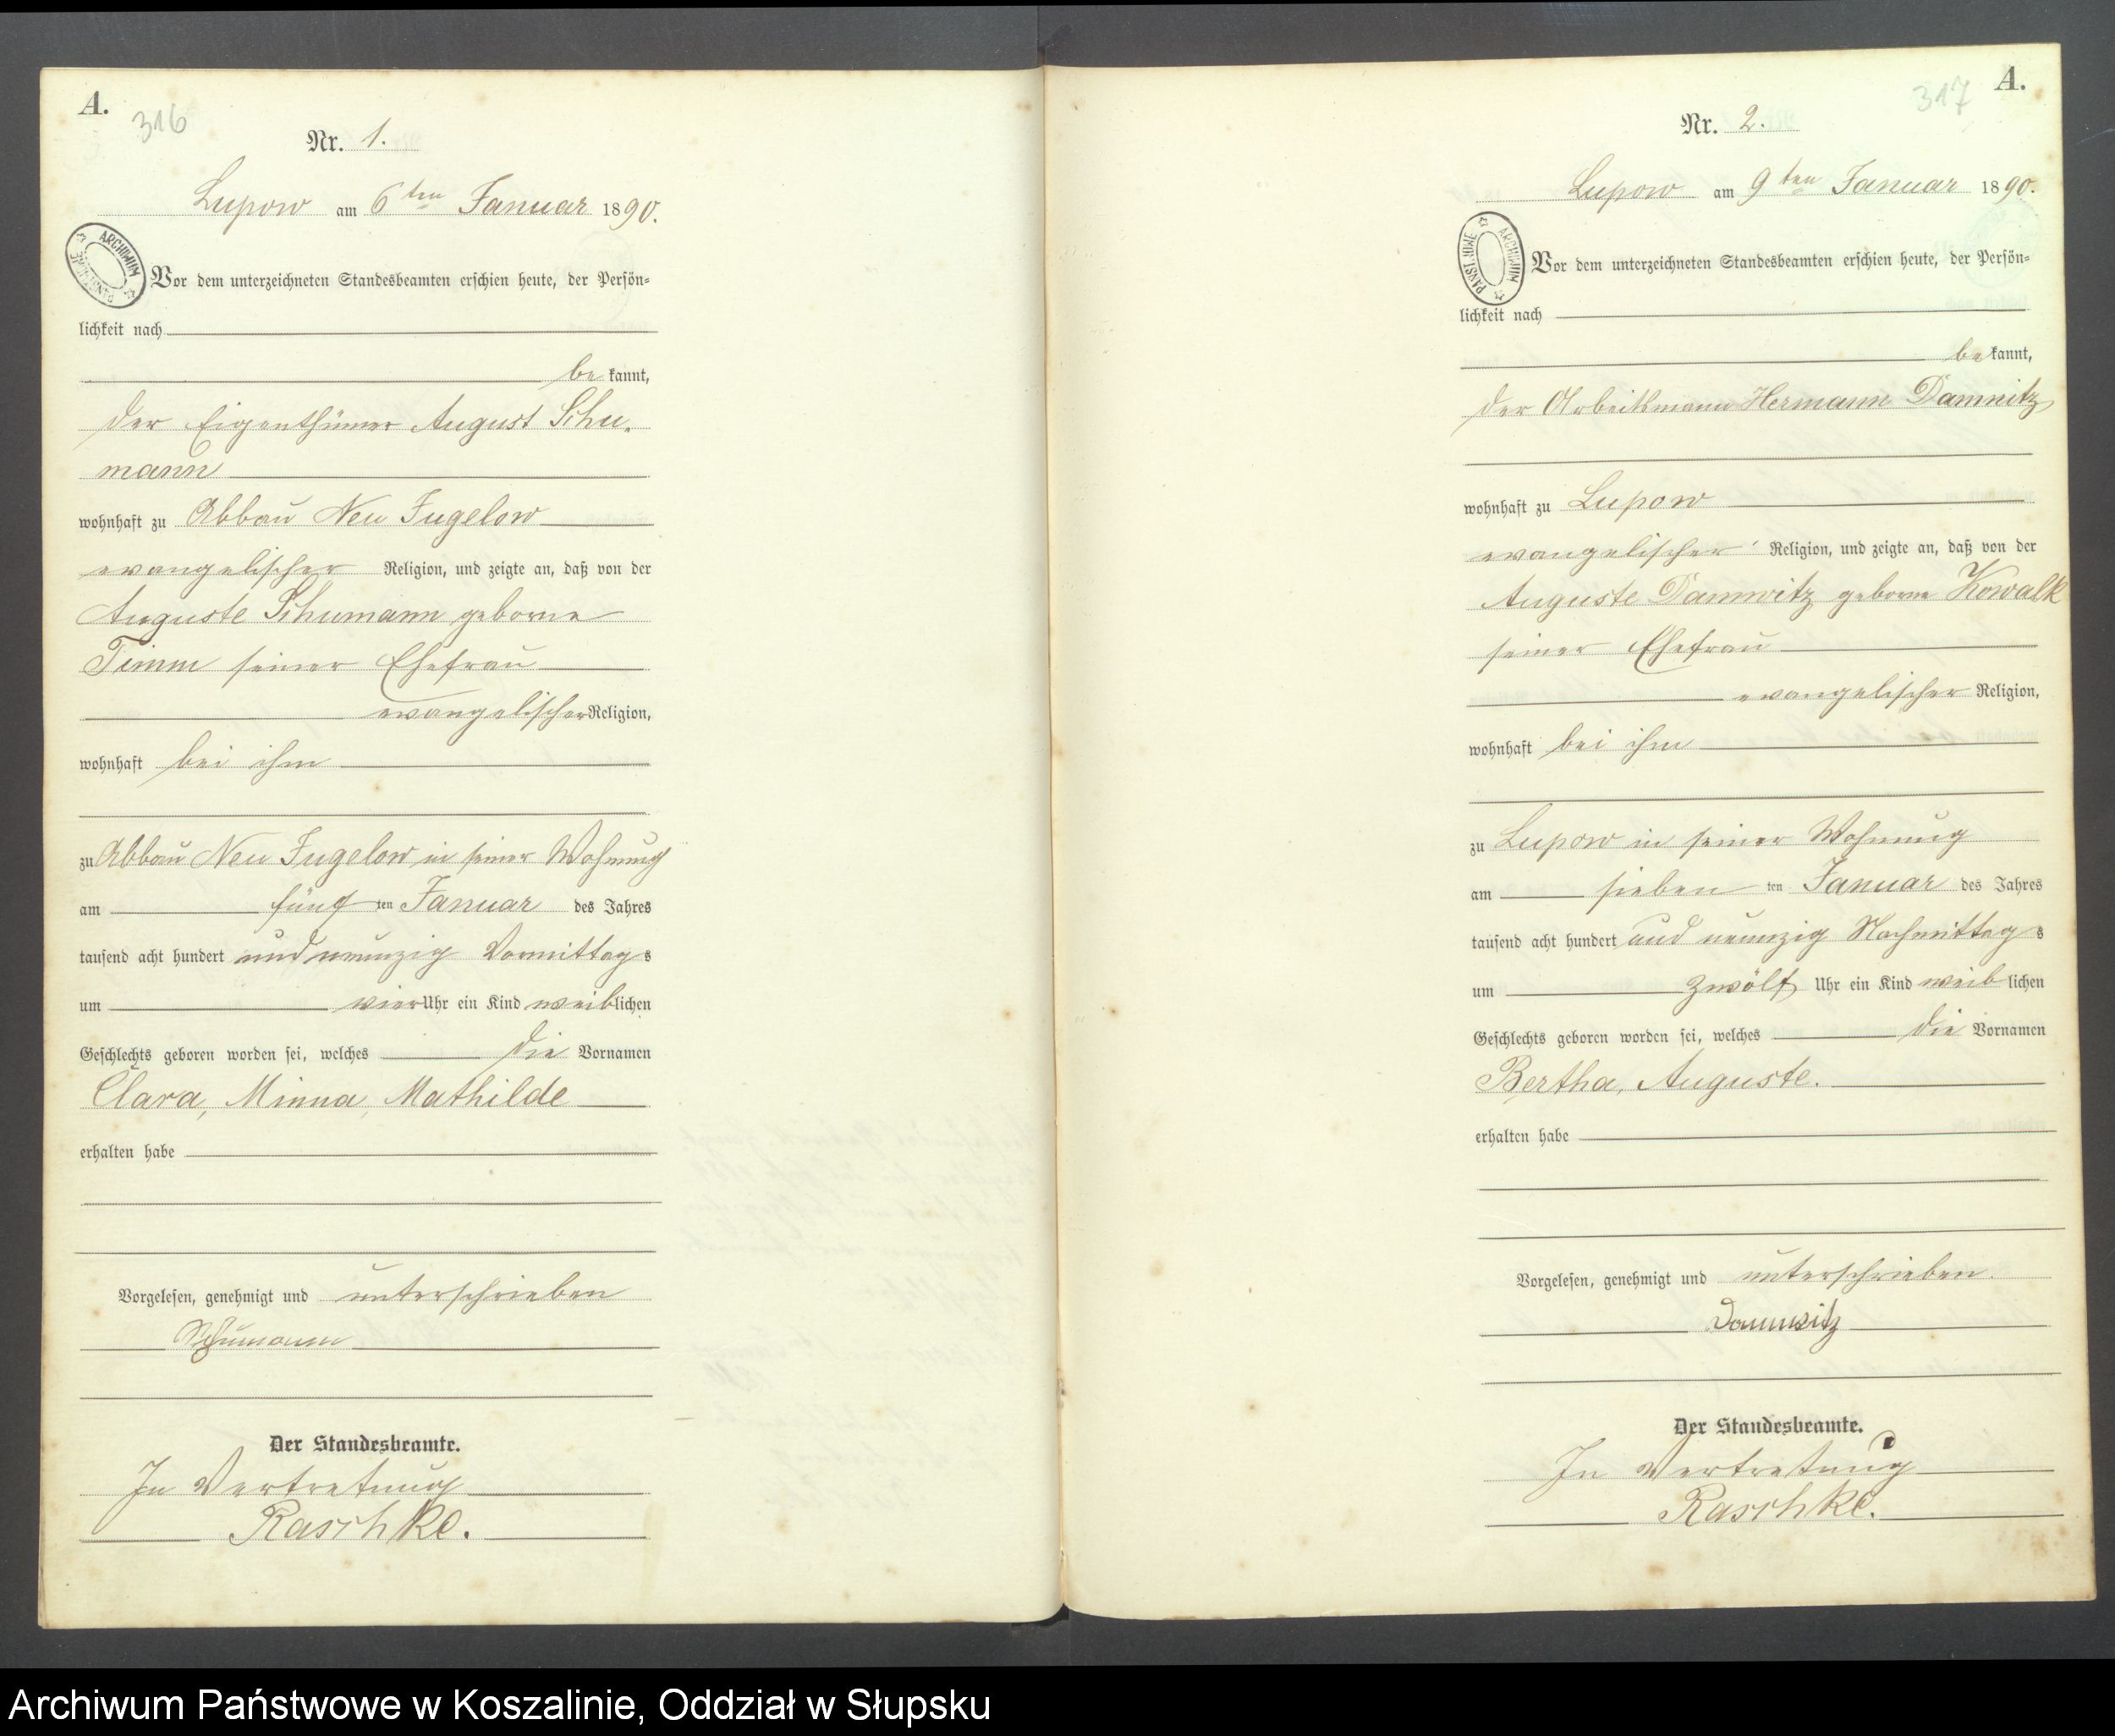 A.
316
Nr. 1.
Lupow am 6ten Januar 1890.
ARCHIWUM PAŃSTWOWE
Vor dem unterzeichneten Standesbeamten erschien heute, der Persön=
lichkeit nach
be kannt,
der Eigenthümer August Schu-
mann
wohnhaft zu Abbau Neu Jugelow
evangelischer Religion, und zeigte an, daß von der
Auguste Schumann geborne
Timm seiner Ehefrau
evangelischer Religion,
wohnhaft bei ihm
zu Abbau Neu Jugelow in seiner Wohnung
am fünf ten Januar des Jahres
tausend acht hundert und neunzig Vormittag s
um vier Uhr ein Kind weiblichen
Geschlechts geboren worden sei, welches die Vornamen
Clara, Minna, Mathilde
erhalten habe
Vorgelesen, genehmigt und unterschrieben
Schumann
Der Standesbeamte.
In Vertretung
Raschke.
317
A.
Nr. 2.
Lupow am 9ten Januar 1890.
ARCHIWUM PAŃSTWOWE
Vor dem unterzeichneten Standesbeamten erschien heute, der Persön=
lichkeit nach
be kannt,
der Arbeitsmann Hermann Damnitz
wohnhaft zu Lupow
evangelischer Religion, und zeigte an, daß von der
Auguste Damnitz geborne Kowalk
seiner Ehefrau
evangelischer Religion,
wohnhaft bei ihm
zu Lupow in seiner Wohnung
am sieben ten Januar des Jahres
tausend acht hundert und neunzig Nachmittag s
um zwölf Uhr ein Kind weib lichen
Geschlechts geboren worden sei, welches die Vornamen
Bertha, Auguste.
erhalten habe
Vorgelesen, genehmigt und unterschrieben.
Damnitz
Der Standesbeamte.
In Vertretung
Raschke.
Archiwum Państwowe w Koszalinie, Oddział w Słupsku